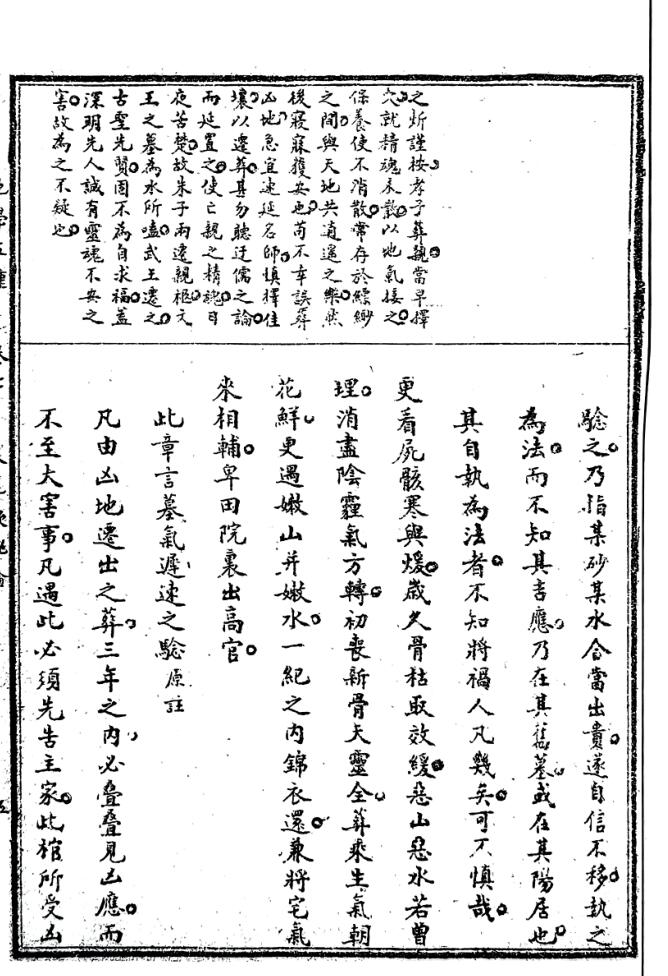 之炘謹按孝子葬親當早擇
穴就精魂未散以地氣接之
保養使不消散常存於縹緲
之間與天地共逍遥之樂然
後寢寐獲安也苟不幸誤葬
凶地急宜速延名師慎擇佳
壤以遷葬其勿聽迂儒之論
而延置之使亡親之精魂日
夜苦楚故朱子兩遷親柩文
王之墓為水所嚙武王遷之
古聖先賢固不為自求福蓋
深明先人誠有靈魂不安之
害故為之不疑也
驗之乃指某砂某水合當出貴遂自信不移執之
為法而不知其吉應乃在其舊墓或在其陽居也
其自執為法者不知將禍人凡幾矣可不慎哉
更看屍骸寒與煖歲久骨枯取效緩惡山惡水若曾
埋消盡陰霾氣方轉初喪新骨天靈全葬乘生氣朝
花鮮更遇嫩山并嫩水一紀之内錦衣還兼將宅氣
來相輔卑田院裏出高官
此章言墓氣遲速之驗原註
凡由凶地遷出之葬三年之内必疊疊見凶應而
不至大害事凡遇此必須先告主家此棺所受凶